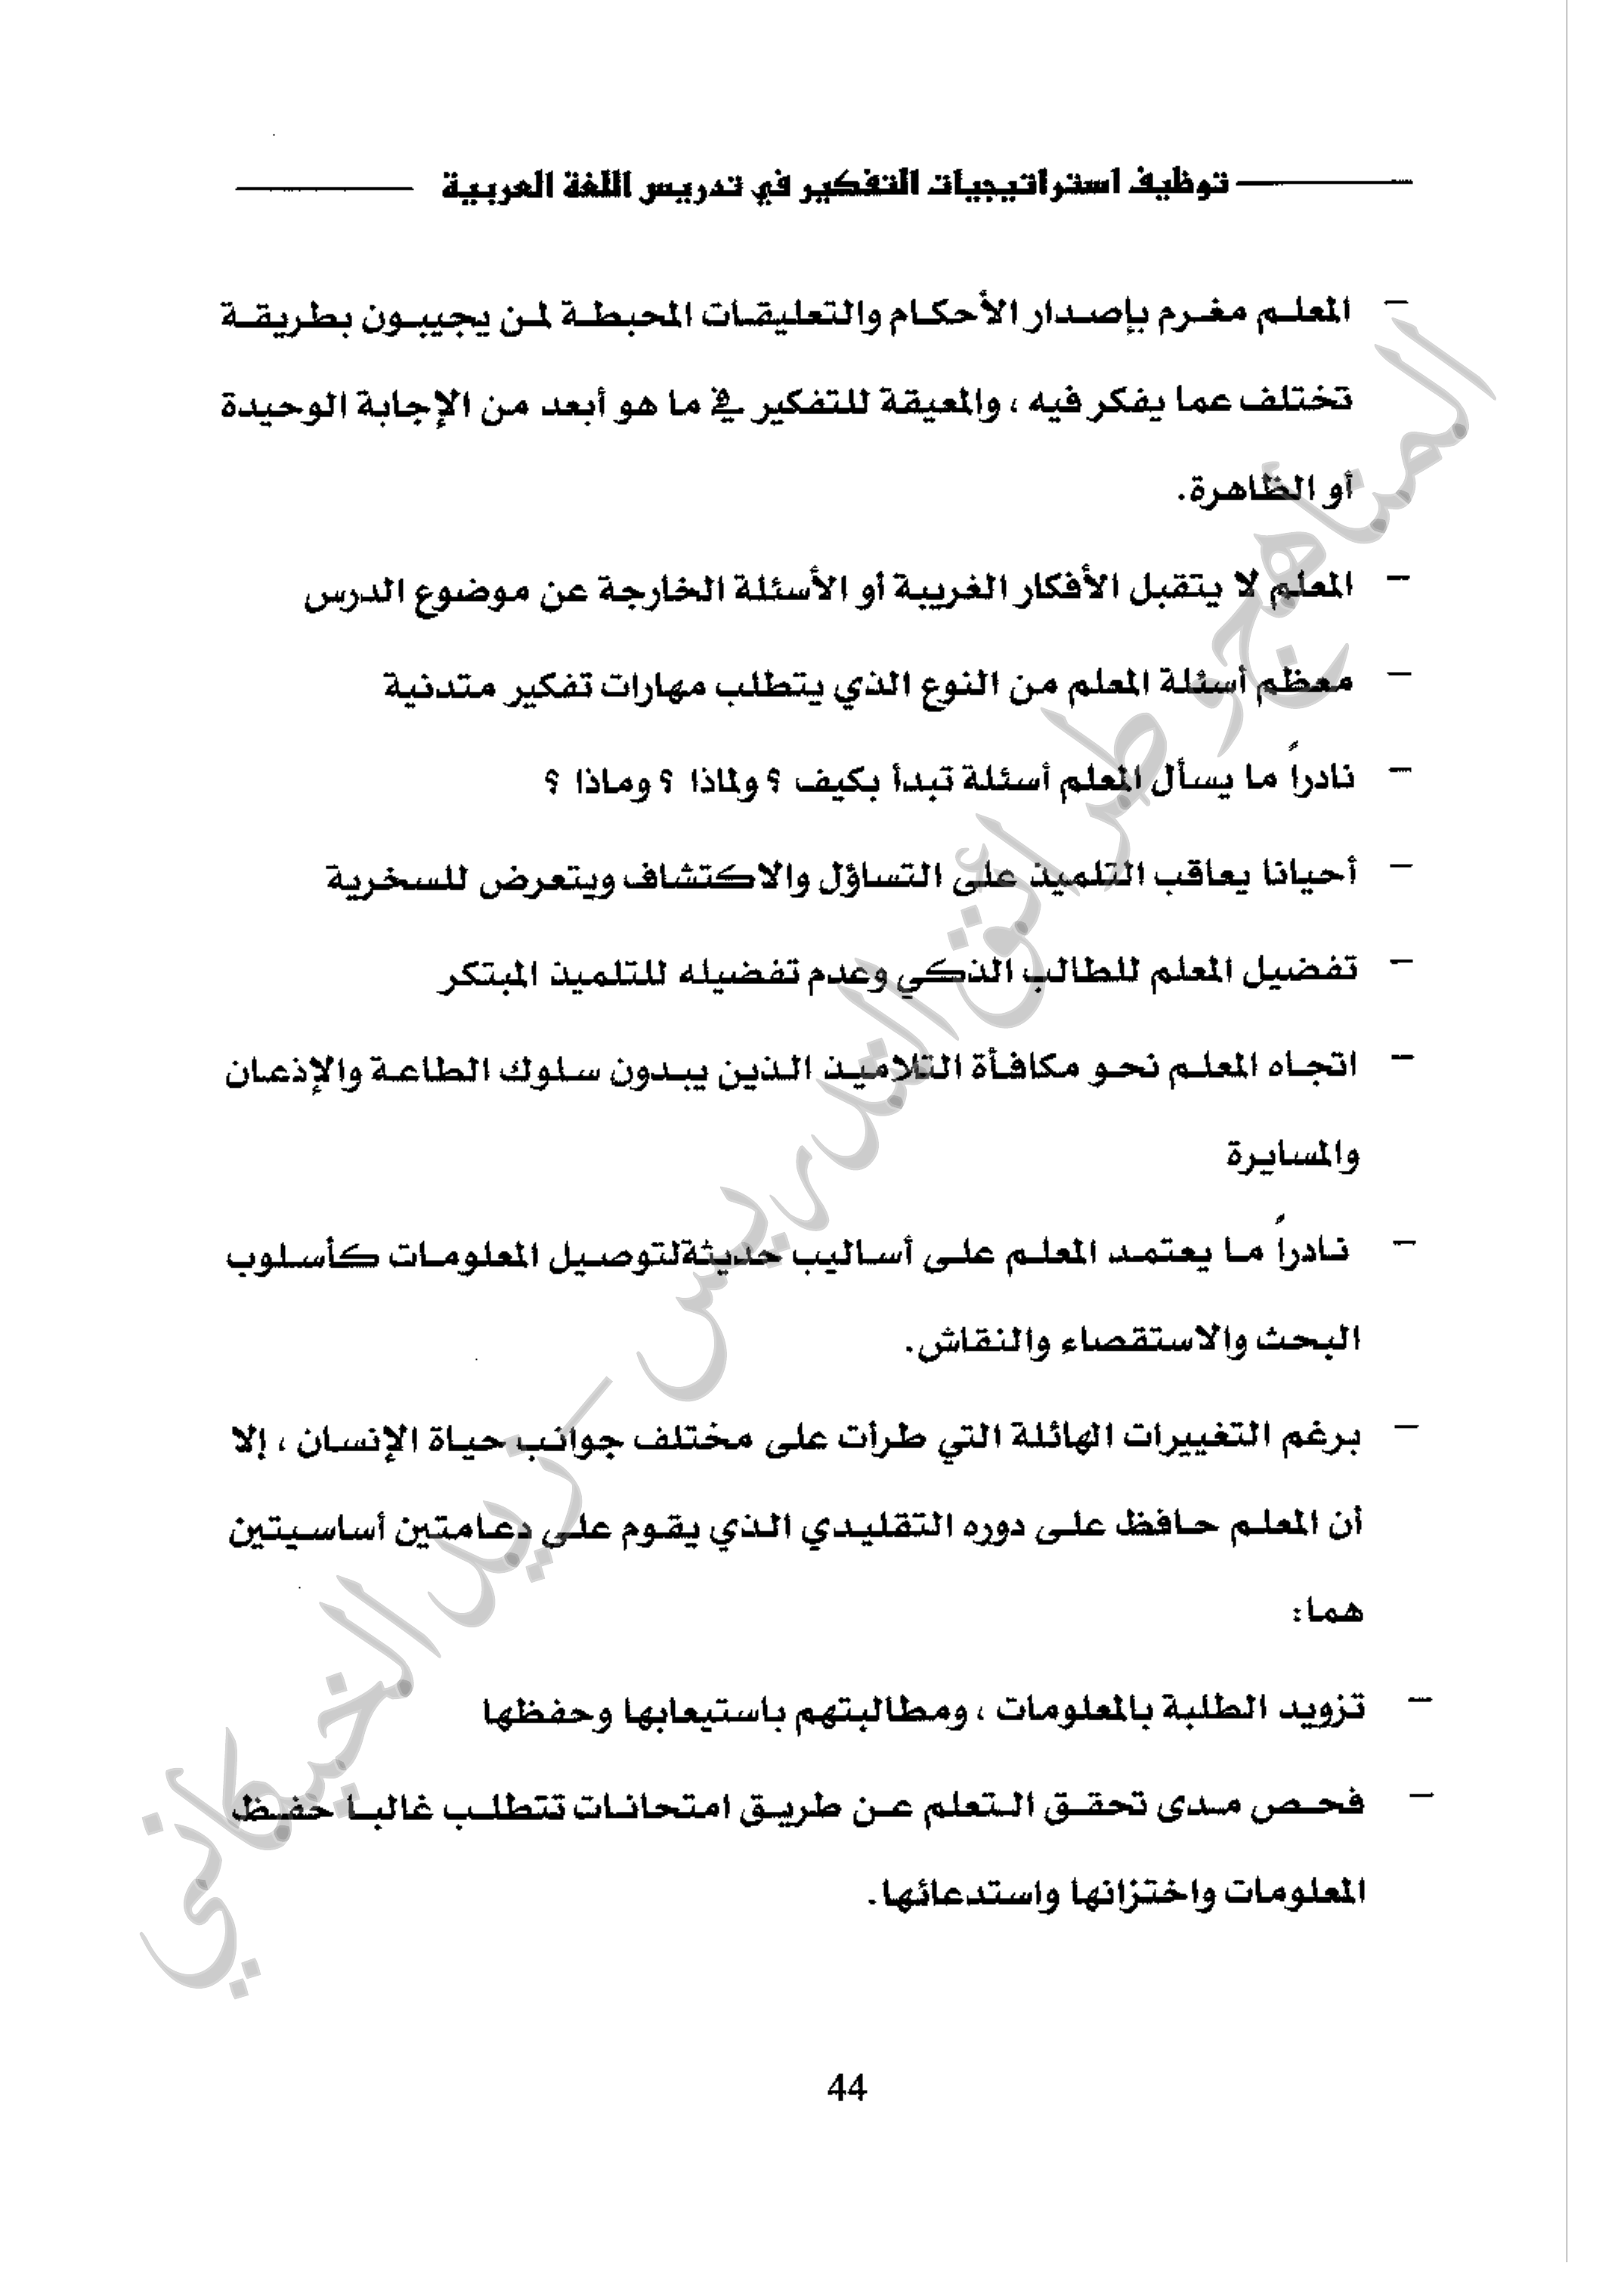 توظيف استراتيجيات التفكير في تدريس اللغة العربية
- المعلم مغرم بإصدار الأحكام والتعليقات المحبطة لمن يجيبون بطريقة
تختلف عما يفكر فيه ، والمعيقة للتفكير في ما هو أبعد من الإجابة الوحيدة
أو الظاهرة.
- المعلم لا يتقبل الأفكار الغريبة أو الأسئلة الخارجة عن موضوع الدرس
- معظم أسئلة المعلم من النوع الذي يتطلب مهارات تفكير متدنية
- نادراً ما يسأل المعلم أسئلة تبدأ بكيف ؟ ولماذا ؟ وماذا ؟
- أحيانا يعاقب التلميذ على التساؤل والاكتشاف ويتعرض للسخرية
- تفضيل المعلم للطالب الذكي وعدم تفضيله للتلميذ المبتكر
- اتجاه المعلم نحو مكافأة التلاميذ الذين يبدون سلوك الطاعة والإذعان
والمسايرة
- نادراً ما يعتمد المعلم على أساليب حديثةلتوصيل المعلومات كأسلوب
البحث والاستقصاء والنقاش.
- برغم التغييرات الهائلة التي طرأت على مختلف جوانب حياة الإنسان ، إلا
أن المعلم حافظ على دوره التقليدي الذي يقوم على دعامتين أساسيتين
هما:
- تزويد الطلبة بالمعلومات ، ومطالبتهم باستيعابها وحفظها
- فحص مدى تحقق التعلم عن طريق امتحانات تتطلب غالبا حفظ
المعلومات واختزانها واستدعائها.
44
المناهج وطرائق التدريس - زيد الخيكاني